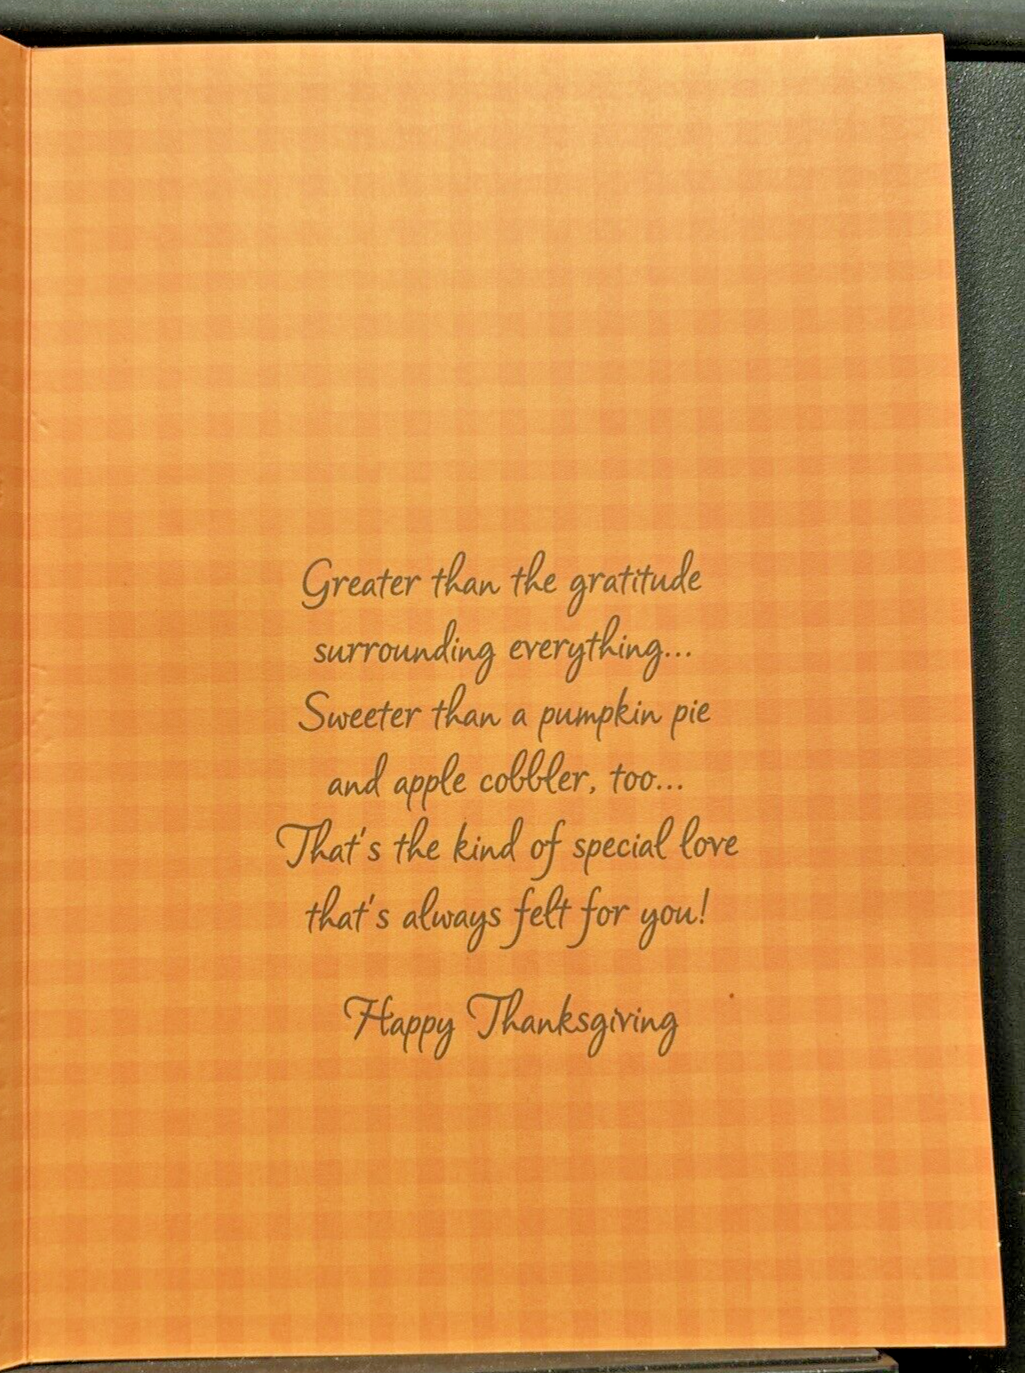 Greater than the gratitude
surrounding everything...
Sweeter than a pumpkin pie
and apple cobbler, too...
That's the kind of special love
that's always felt for you!
Happy Thanksgiving